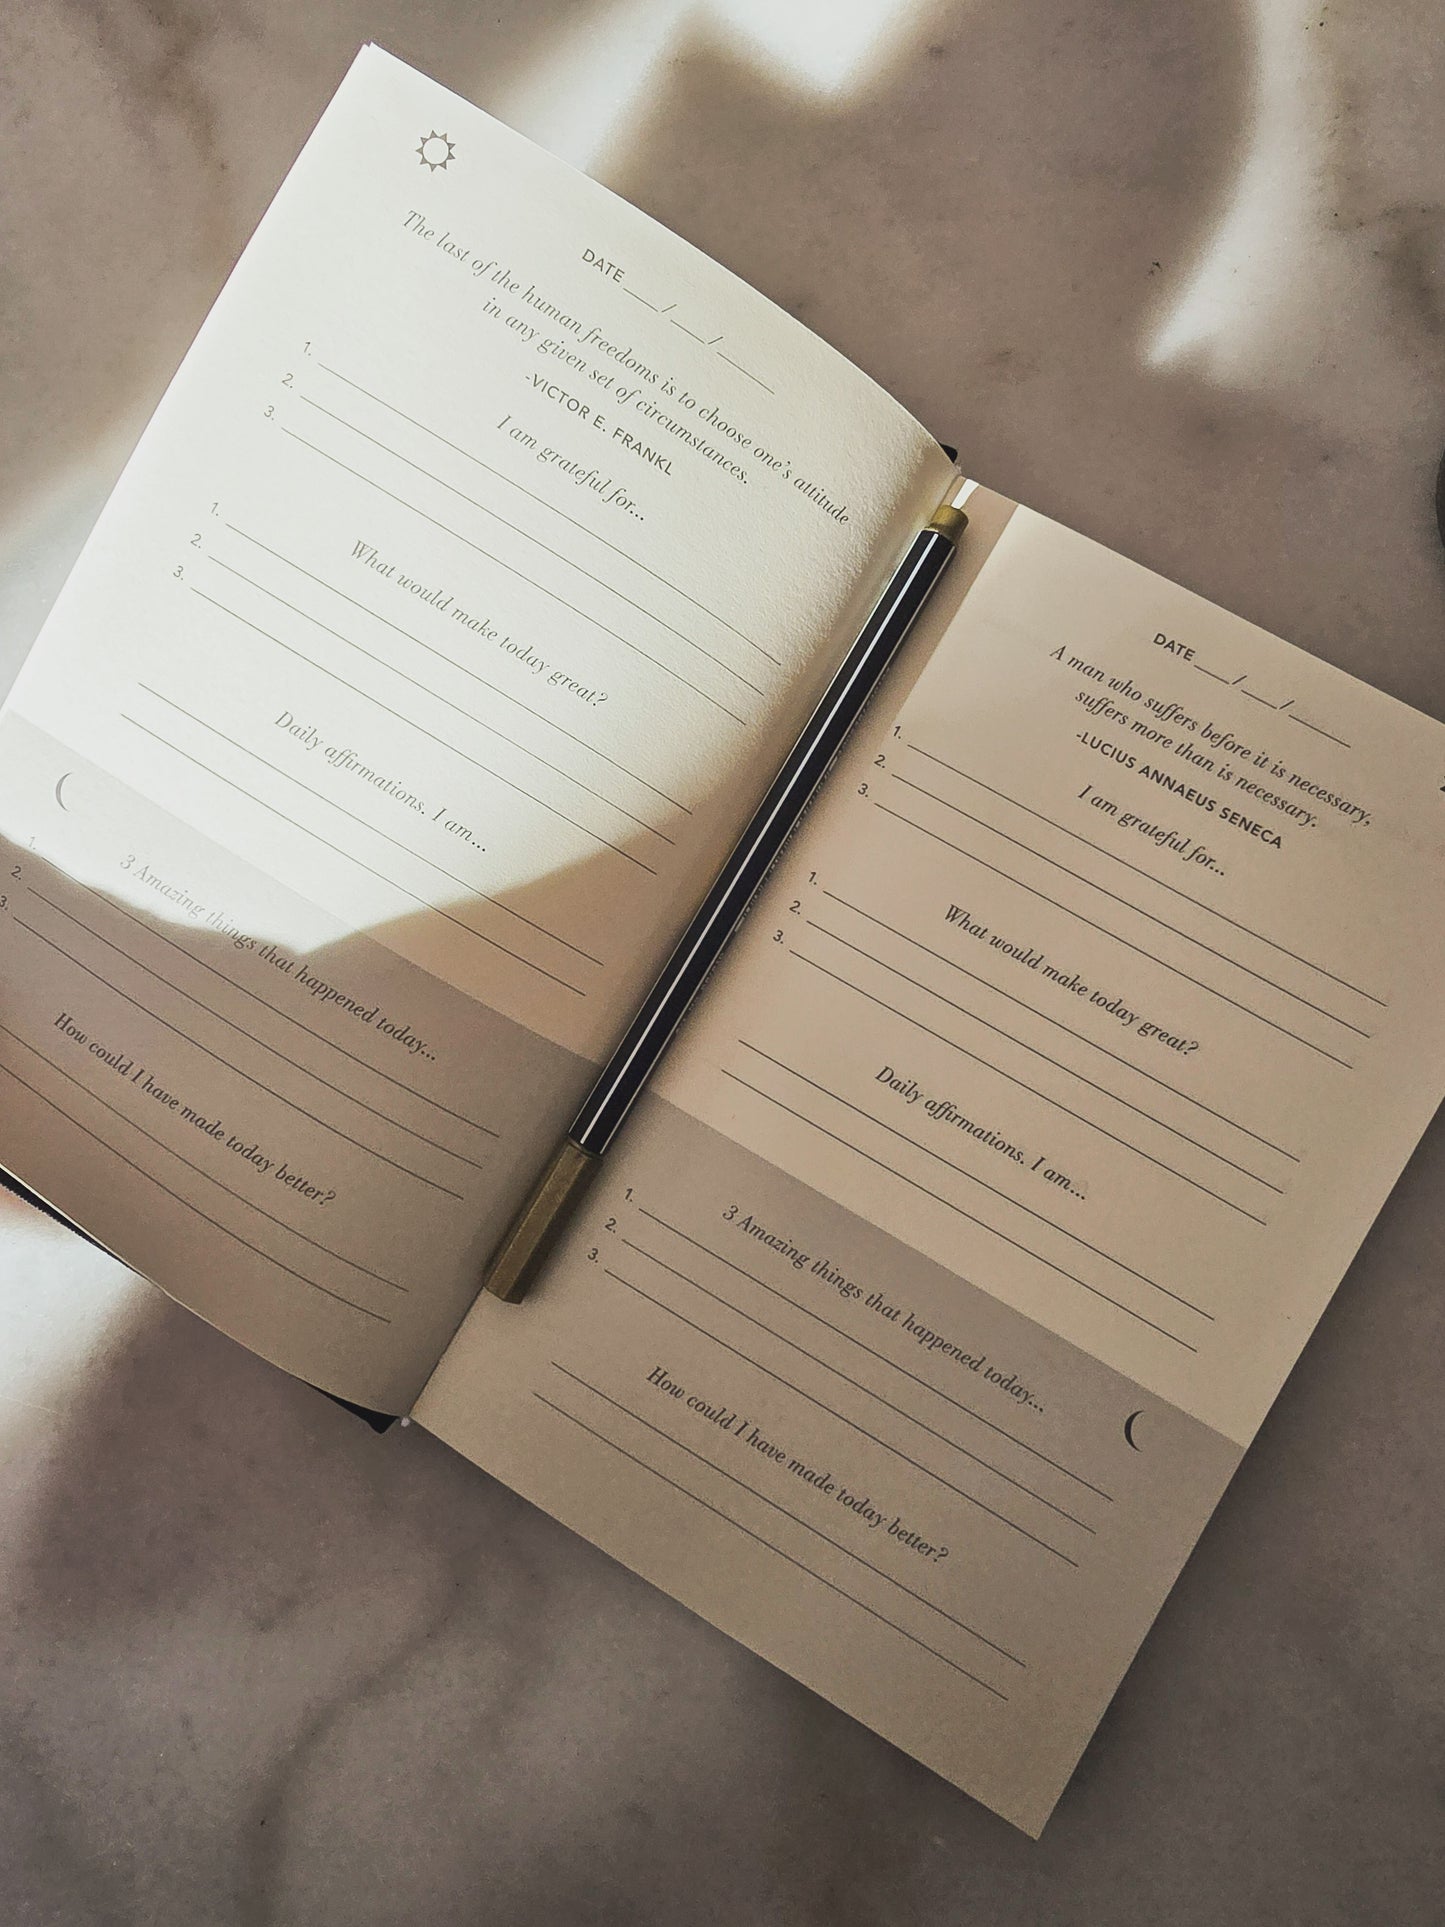 DATE ___/___/____
The last of the human freedoms is to choose one's attitude
in any given set of circumstances.
-VICTOR E. FRANKL
I am grateful for...
1.
2.
3.
What would make today great?
1.
2.
3.
Daily affirmations. I am...
3 Amazing things that happened today...
1.
2.
3.
How could I have made today better?
DATE ___/___/____
A man who suffers before it is necessary,
suffers more than is necessary.
-LUCIUS ANNAEUS SENECA
I am grateful for...
1.
2.
3.
What would make today great?
1.
2.
3.
Daily affirmations. I am...
3 Amazing things that happened today...
1.
2.
3.
How could I have made today better?